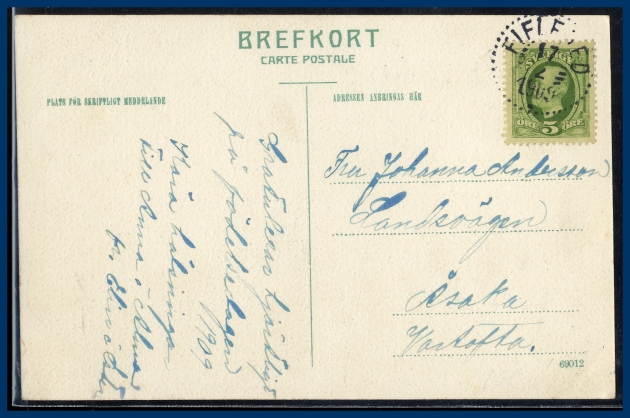 BREFKORT
CARTE POSTALE
PLATS FÖR SKRIFTLIGT MEDDELANDE
ADRESSEN ANBRINGAS HÄR
FIFLERED
17
2
SVERIGE
ÖRE 5 ÖRE
Gratuleras hjärtligt
på födelsedagen
1909
Kära hälsningar
till Anna o Alma
fr. Elin o
Fru Johanna Andersson
Landsvägen
Åsaka
Vartofta.
69012